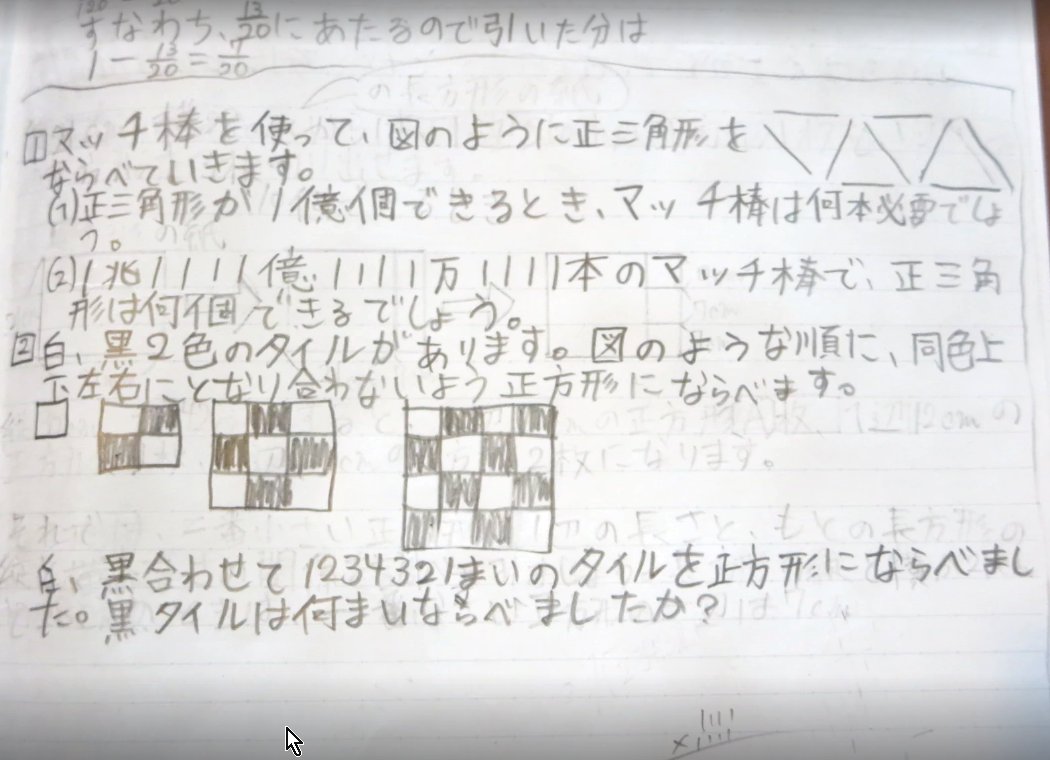 すなわち、13/20にあたるので引いた分は
1－13/20＝7/20
1 マッチ棒を使って、図のように正三角形を
ならべていきます。
(1)正三角形が1億個できるとき、マッチ棒は何本必要でしょ
う。
(2)1兆1111億1111万1111本のマッチ棒で、正三角
形は何個できるでしょう。
2 白、黒2色のタイルがあります。図のような順に、同色上
下左右にとなり合わないよう正方形にならべます。
白、黒合わせて1234321まいのタイルを正方形にならべまし
た。黒タイルは何まいならべましたか？
1111
×1111